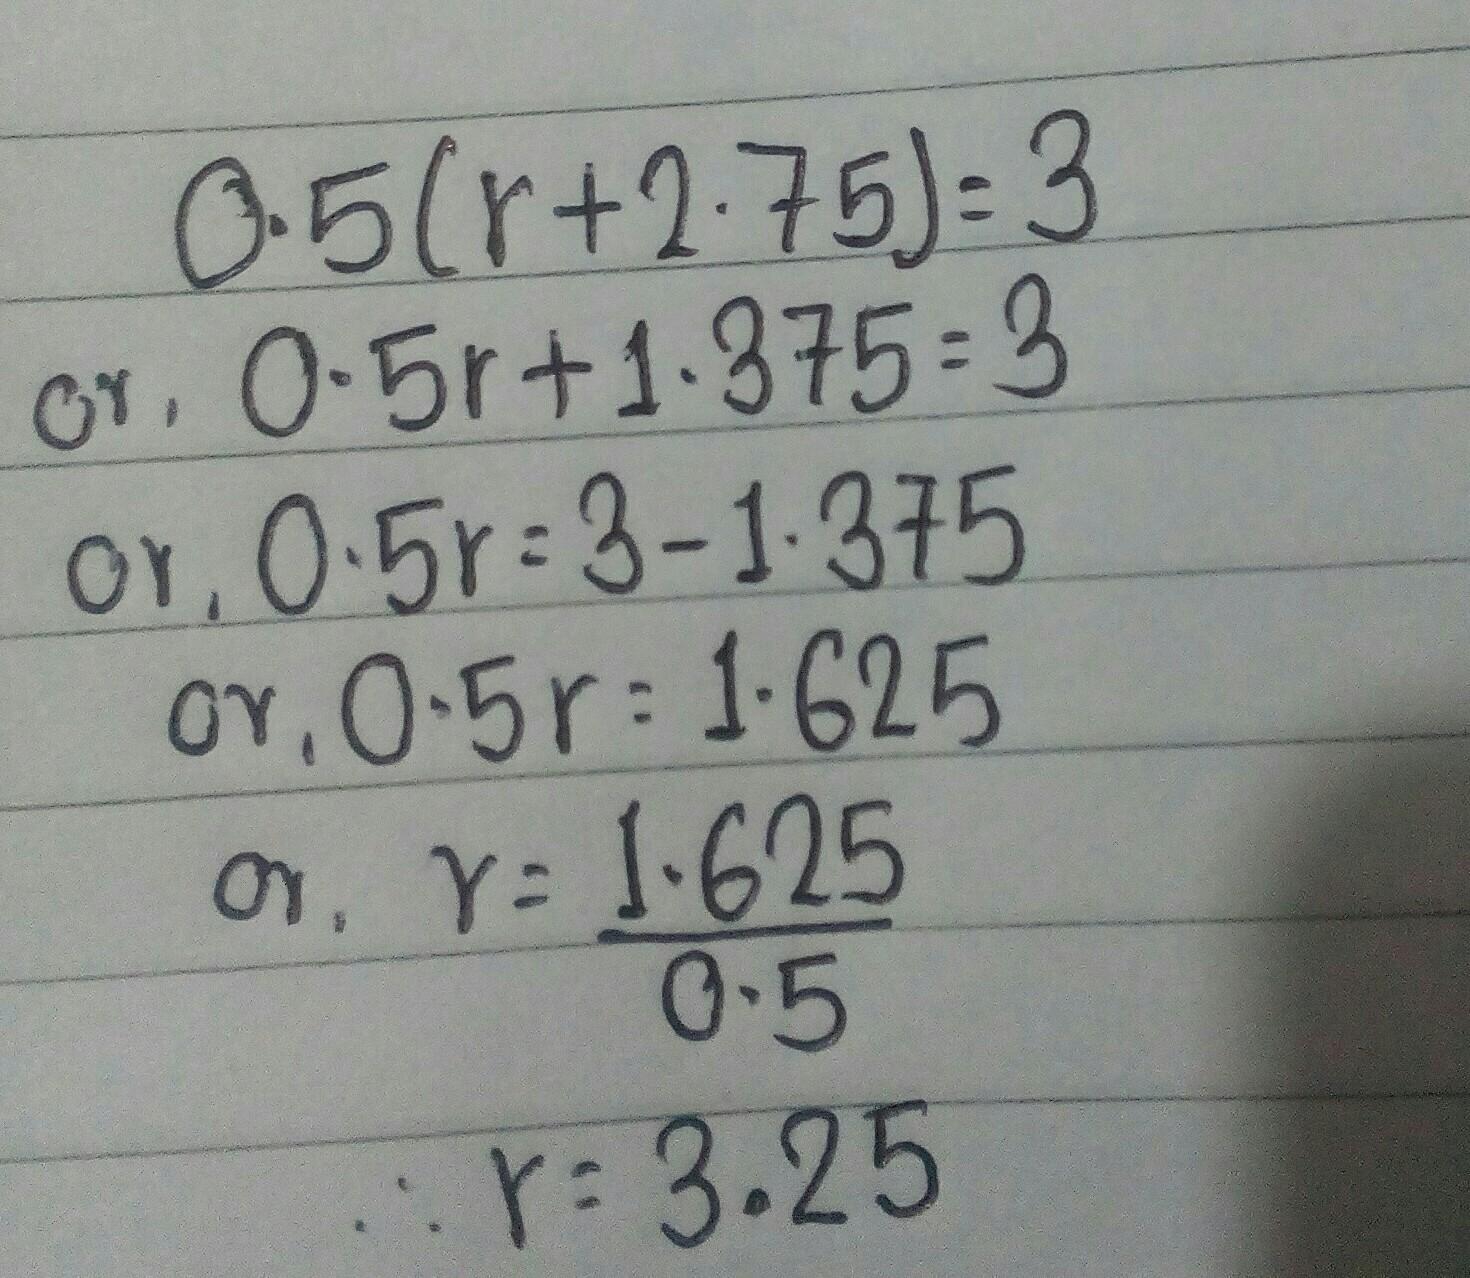 0.5(r+2.75)=3
or, 0.5r+1.375=3
or, 0.5r=3-1.375
or, 0.5r=1.625
or, r=1.625/0.5
∴ r=3.25